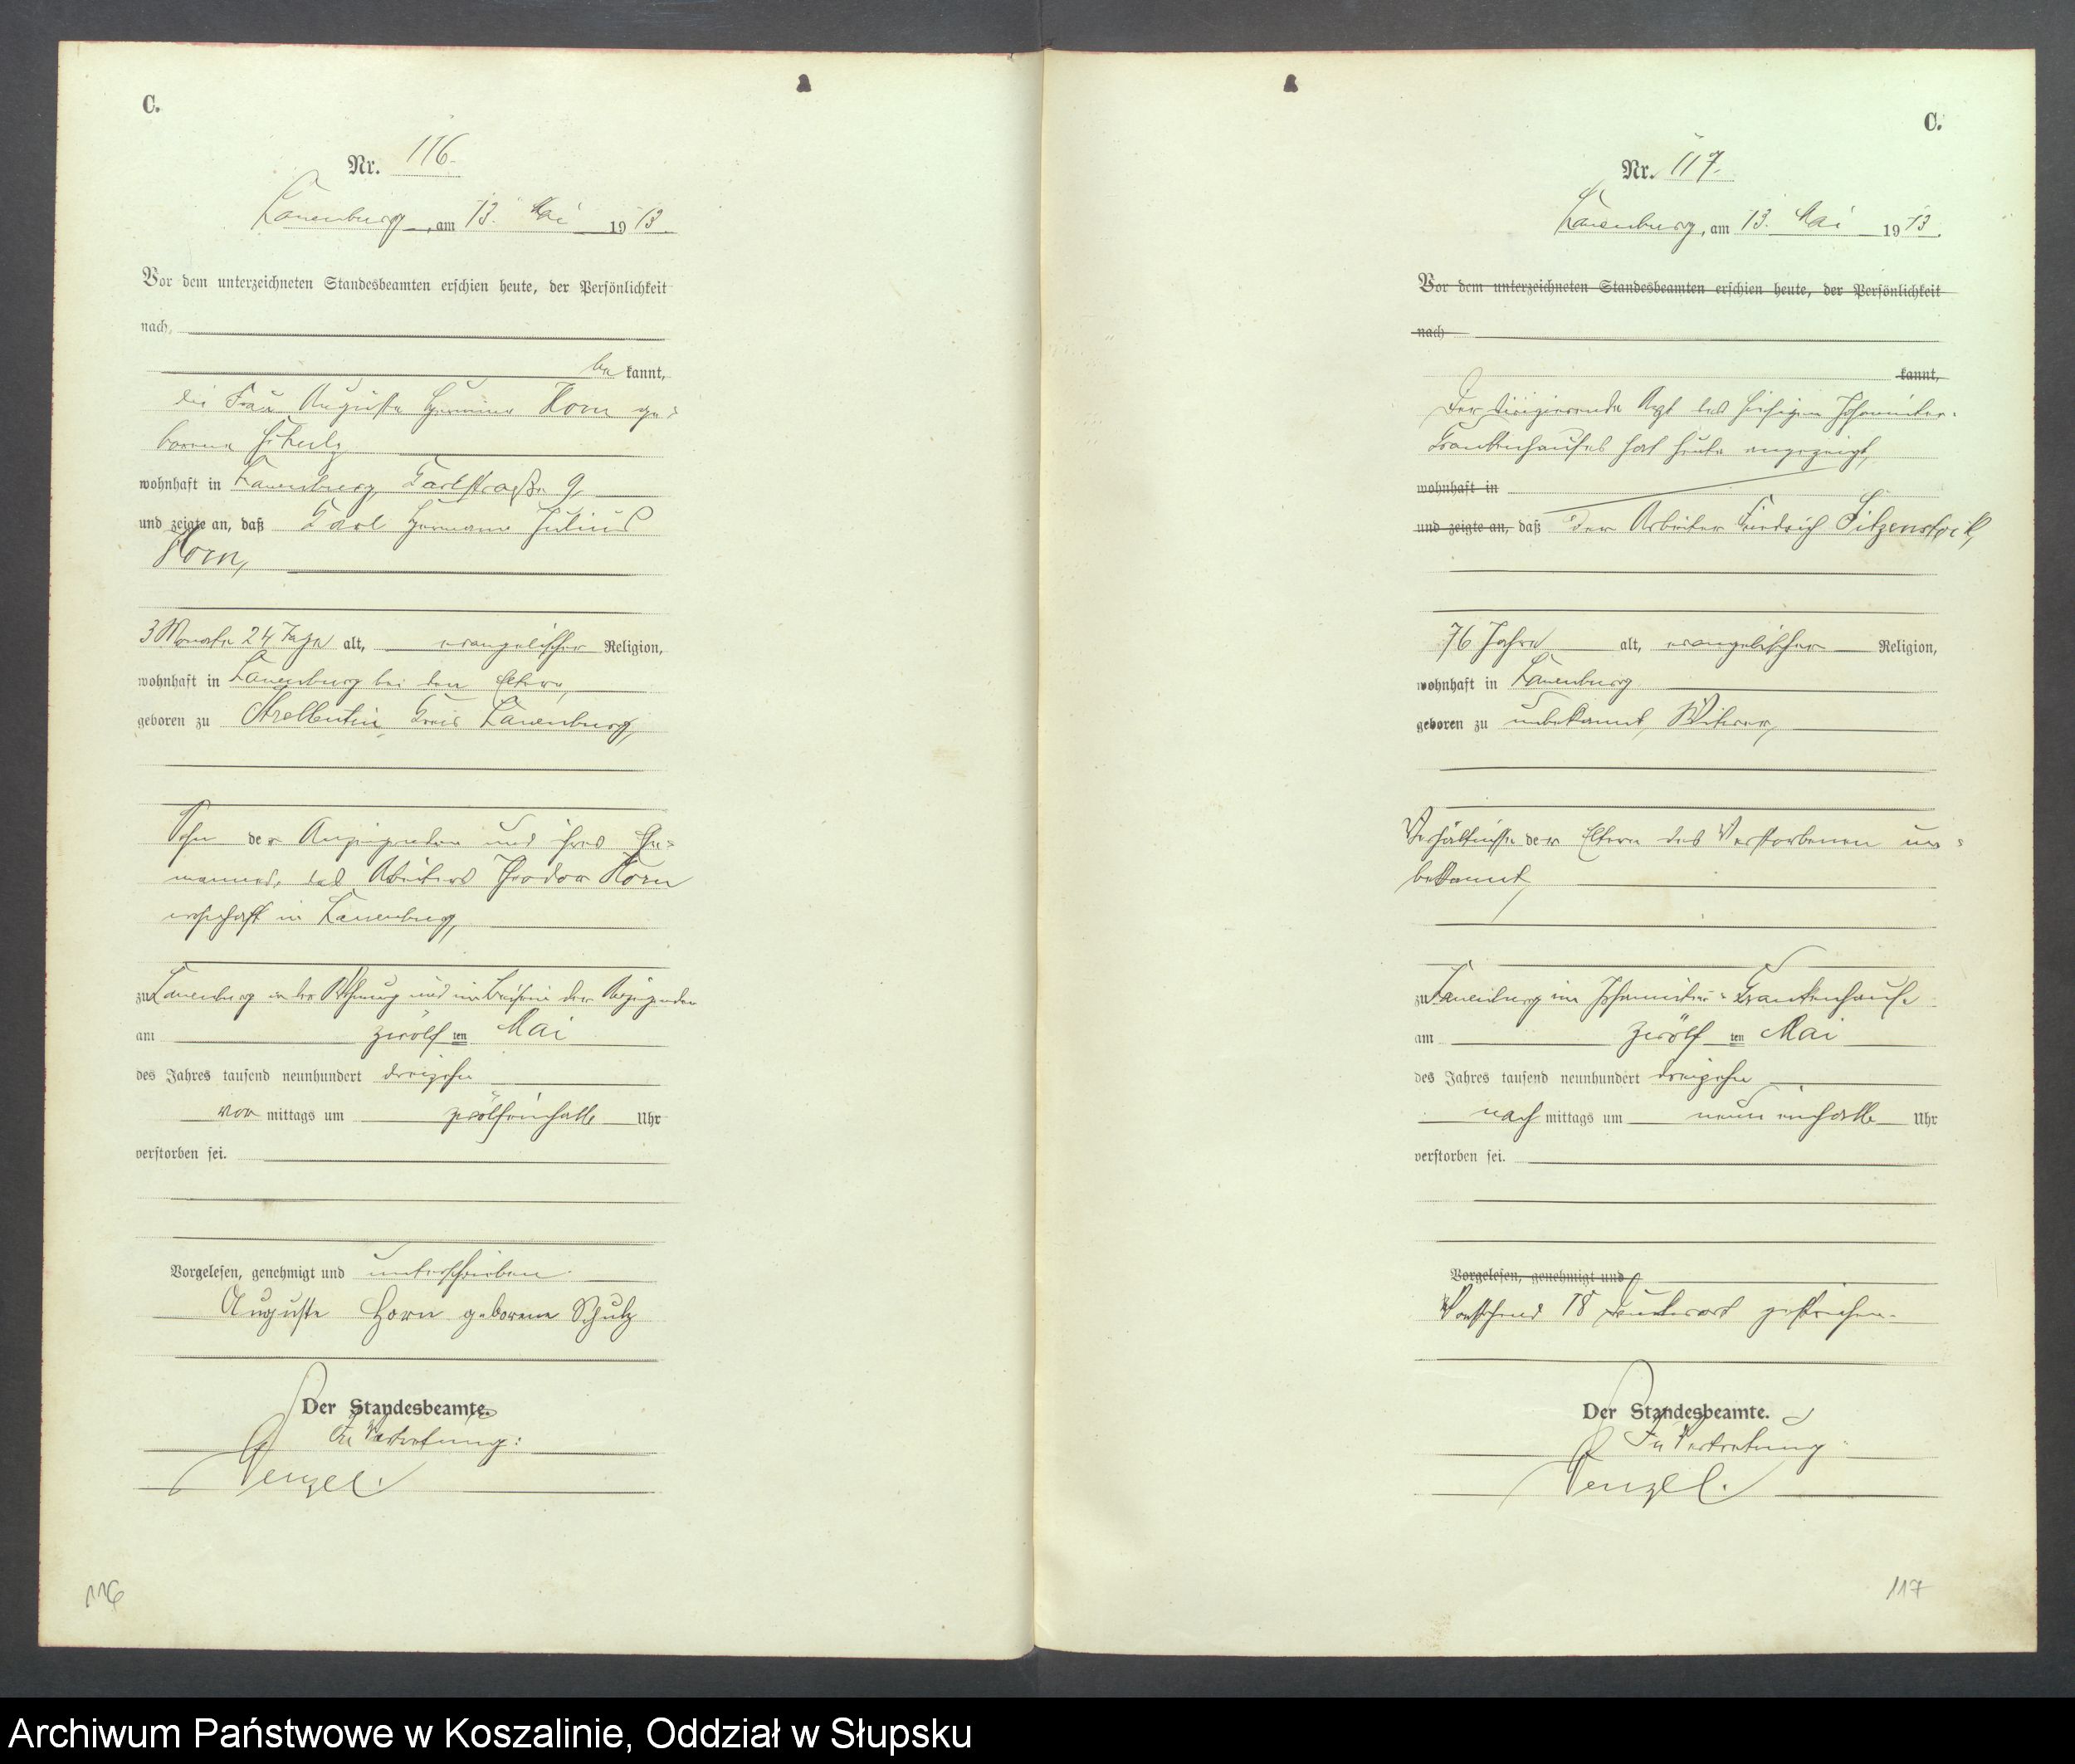 C.
Nr. 116.
Lauenburg, am 13. Mai 1913.
Vor dem unterzeichneten Standesbeamten erschien heute, der Persönlichkeit
nach,
bekannt,
die Frau Auguste Hermine Horn ge-
borene Schulz
wohnhaft in Lauenburg, Carlstraße 9,
und zeigte an, daß Carl Hermann Julius
Horn,
3 Monate 24 Tage alt, evangelischer Religion,
wohnhaft in Lauenburg bei den Eltern,
geboren zu Strellentin Kreis Lauenburg,
Sohn der Anzeigenden und ihres Ehe-
mannes, des Arbeiters Theodor Horn
wohnhaft in Lauenburg,
zu Lauenburg in der Wohnung und im Beisein der Anzeigenden
am zwölften Mai
des Jahres tausend neunhundert dreizehn
vormittags um zwölfeinhalb Uhr
verstorben sei.
Vorgelesen, genehmigt und unterschrieben.
Auguste Horn geborene Schulz
Der Standesbeamte.
In Vertretung:
Wenzel.
116
C.
Nr. 117.
Lauenburg, am 13. Mai 1913.
Vor dem unterzeichneten Standesbeamten erschien heute, der Persönlichkeit
nach
kannt,
Der dirigierende Arzt des hiesigen Johanniter-
Krankenhauses hat heute angezeigt,
wohnhaft in
und zeigte an, daß der Arbeiter Friedrich Sitzenstock,
76 Jahre alt, evangelischer Religion,
wohnhaft in Lauenburg
geboren zu unbekannt, Witwer,
Verhältnisse der Eltern des Verstorbenen un-
bekannt,
zu Lauenburg im Johanniter-Krankenhause
am zwölften Mai
des Jahres tausend neunhundert dreizehn
nachmittags um neun einhalb Uhr
verstorben sei.
Vorgelesen, genehmigt und
Vorstehend 18 Druckworte gestrichen.
Der Standesbeamte.
In Vertretung:
Wenzel.
117
Archiwum Państwowe w Koszalinie, Oddział w Słupsku